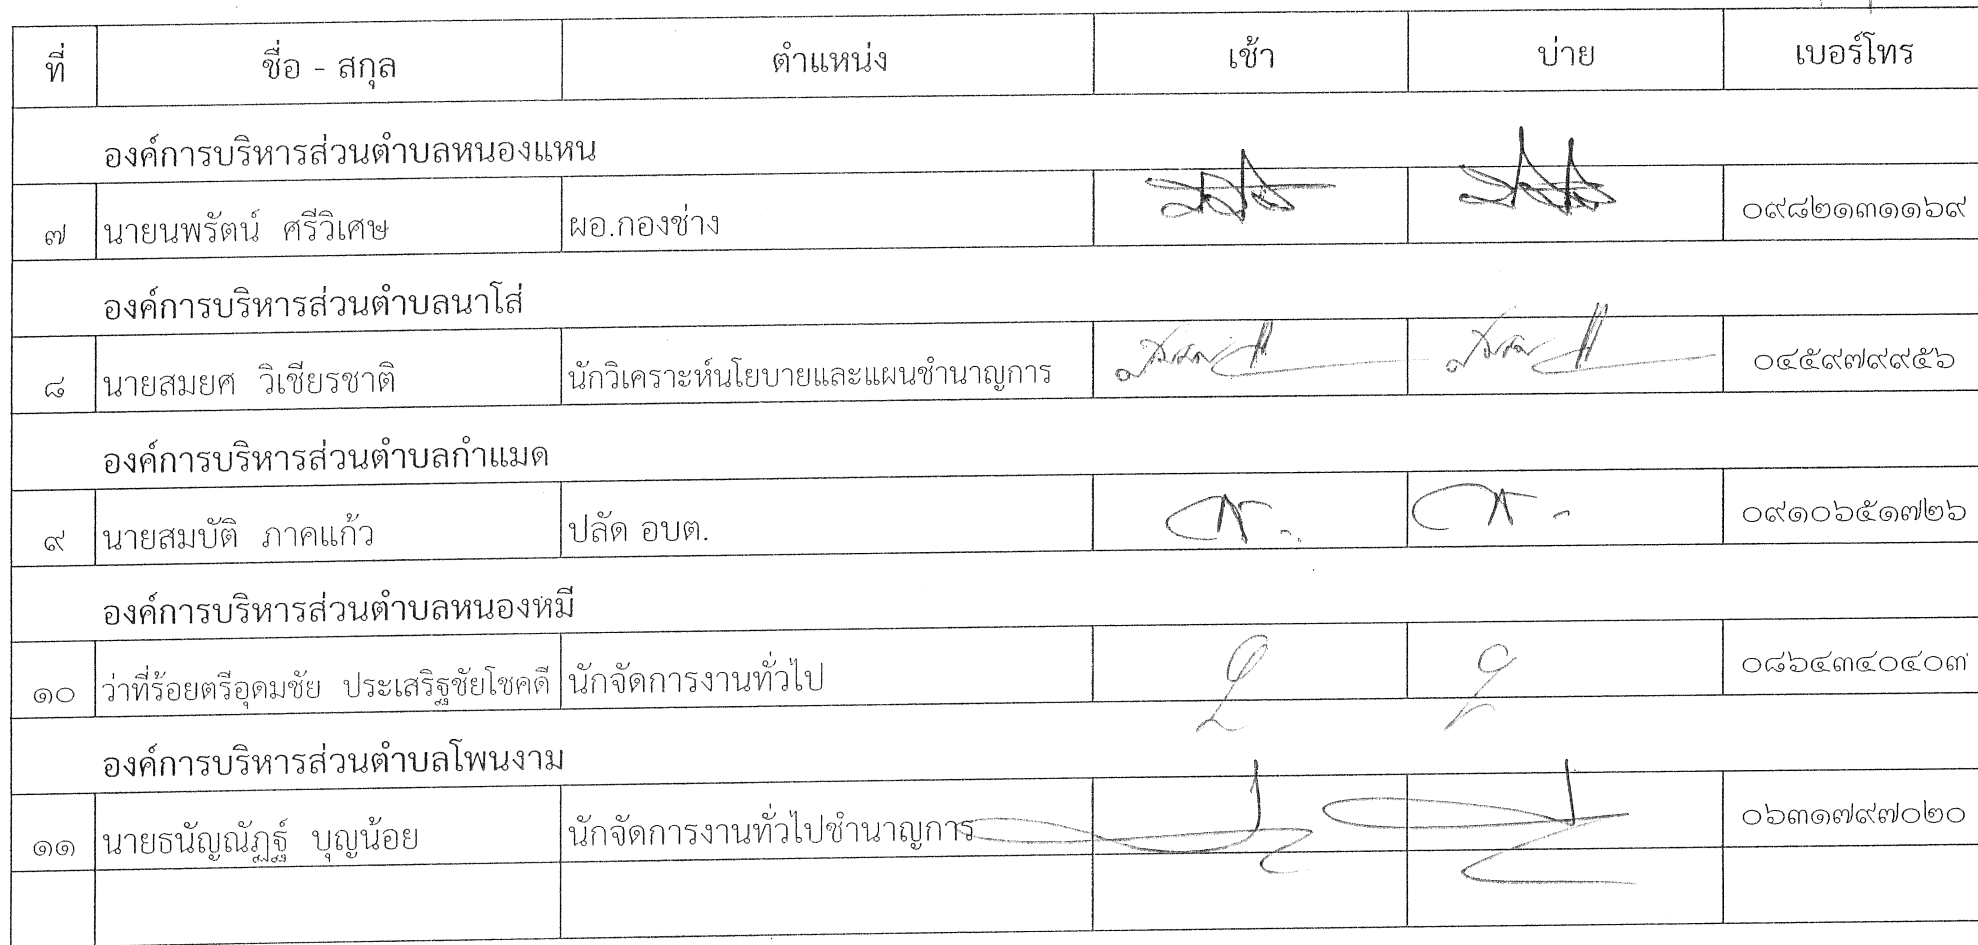 ที่ ชื่อ - สกุล ตำแหน่ง เช้า บ่าย เบอร์โทร
องค์การบริหารส่วนตำบลหนองแหน
๗ นายนพรัตน์ ศรีวิเศษ ผอ.กองช่าง ๐๙๘๒๑๓๑๑๖๙
องค์การบริหารส่วนตำบลนาโส่
๘ นายสมยศ วิเชียรชาติ นักวิเคราะห์นโยบายและแผนชำนาญการ ๐๔๕๙๗๙๙๕๖
องค์การบริหารส่วนตำบลกำแมด
๙ นายสมบัติ ภาคแก้ว ปลัด อบต. ๐๙๑๐๖๕๑๗๒๖
องค์การบริหารส่วนตำบลหนองหมี
๑๐ ว่าที่ร้อยตรีอุดมชัย ประเสริฐชัยโชคดี นักจัดการงานทั่วไป ๐๘๖๔๓๔๐๔๐๓
องค์การบริหารส่วนตำบลโพนงาม
๑๑ นายธนัญณัฏฐ์ บุญน้อย นักจัดการงานทั่วไปชำนาญการ ๐๖๓๑๗๙๗๐๒๐